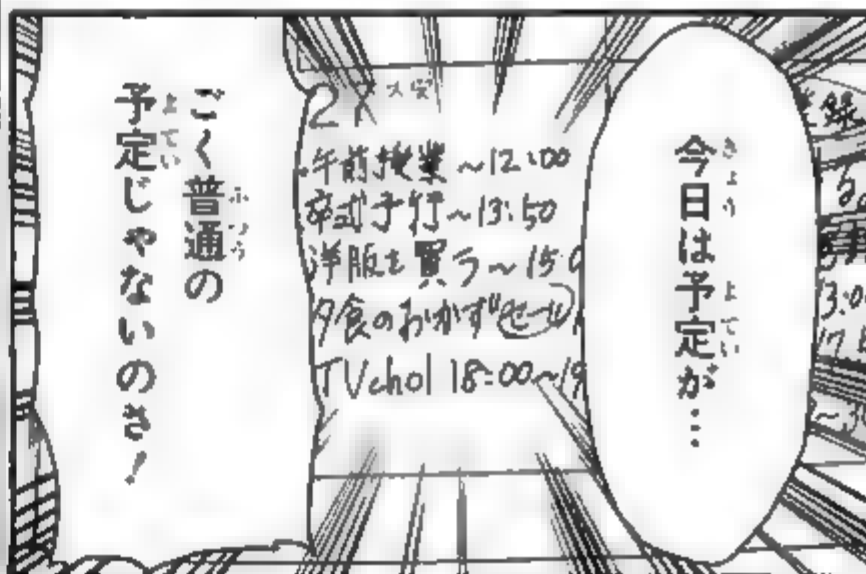 今日は予定が…
27
午前授業~12:00
卒式予行~13:50
洋服を買う~15:0
夕食のおかずセール
TVchol 18:00~19
ごく普通の
予定じゃないのさ!